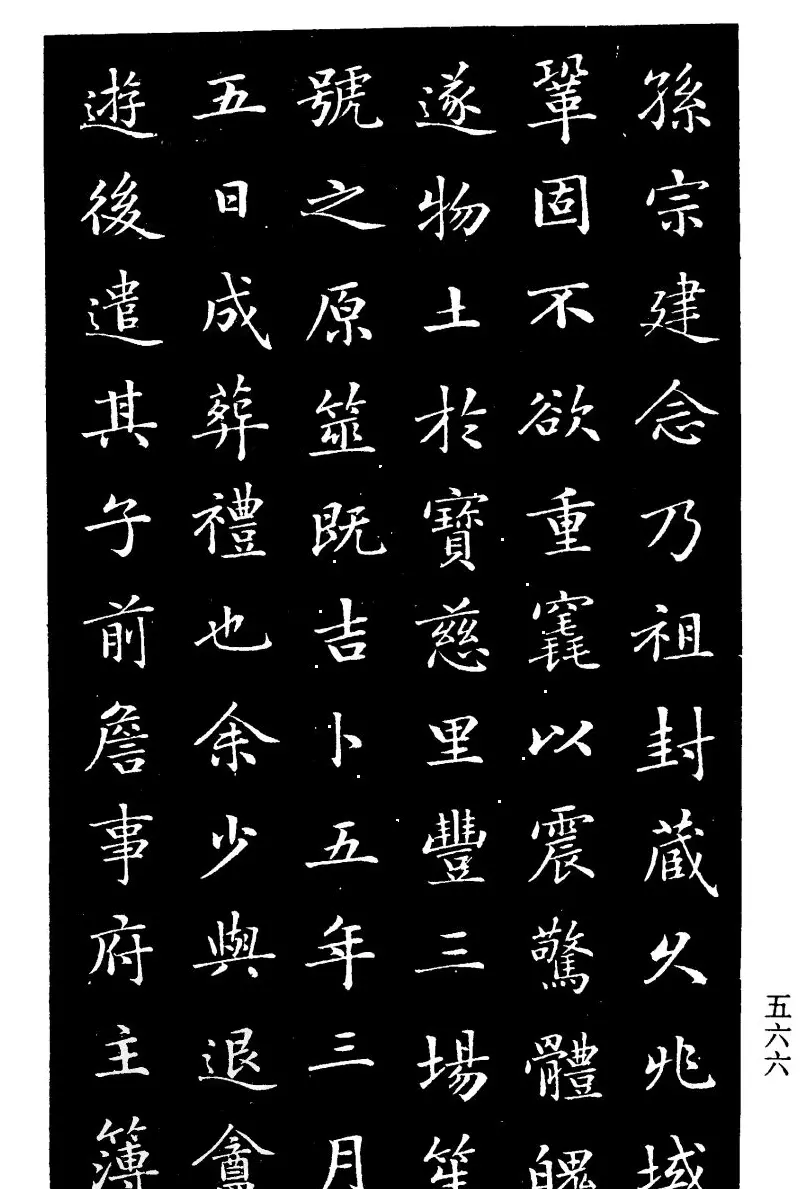 孫宗建念乃祖封蔵久兆域
鞏固不欲重竁以震驚體魄
遂物土於寶慈里豐三場笙
號之原筮既吉卜五年三月
五日成葬禮也余少與退龕
遊後遣其子前詹事府主簿
五六六